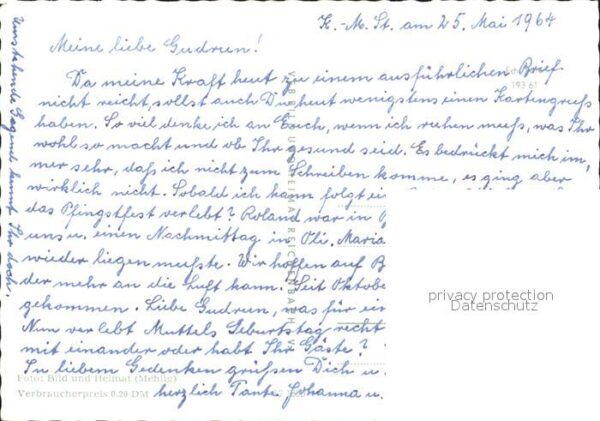 K.-M. St. am 25. Mai 1964
Meine liebe Gudrun!
Da meine Kraft heut zu einem ausführlichen Brief
nicht reicht, sollst auch Du heut wenigstens einen Kartengruß
haben. So viel denke ich an Euch, wenn ich ruhen muß, was Ihr
wohl so macht und ob Ihr gesund seid. Es bedrückt mich im,
mer sehr, daß ich nicht zum Schreiben komme, es ging aber
wirklich nicht. Sobald ich kann folgt ei
das Pfingstfest verlebt? Roland war in
uns u. einen Nachmittag in Öli. Maria
wieder liegen mußte. Wir hoffen auf B
der mehr an die Luft kann. Seit Oktobe
gekommen. Liebe Gudrun, was für ein
Nun verlebt Muttels Geburtstag recht
mit einander oder habt Ihr Gäste?
In liebem Gedenken grüßen Dich u.
herzlich Tante Johanna u.
Umstehende Gegend kennt Ihr doch.
Foto: Bild und Heimat (Mehlig)
Verbraucherpreis 0,20 DM
193 61
privacy protection
Datenschutz